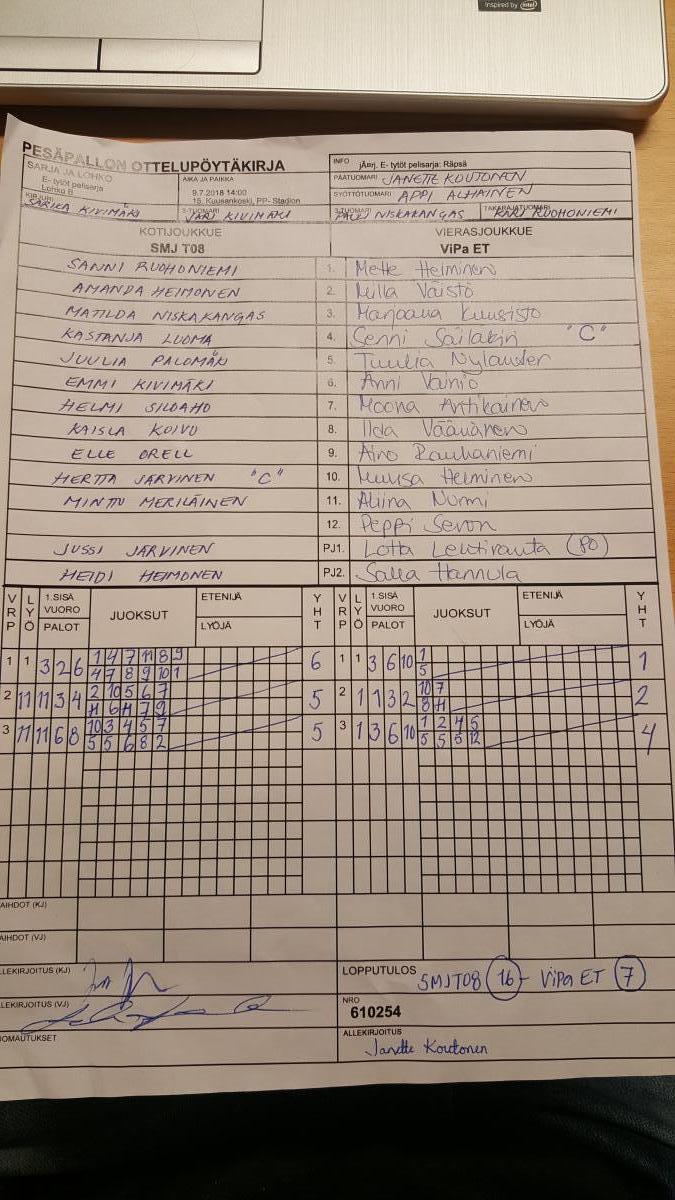 inspired by intel
PESÄPALLON OTTELUPÖYTÄKIRJA
SARJA JA LOHKO
E- tytöt pelisarja
Lohko 8
AIKA JA PAIKKA
9.7.2018 14:00
15. Kuusankoski, PP- Stadion
INFO jÄ¤rj. E- tytöt pelisarja: Räpsä
PÄÄTUOMARI JANETTE KOUTONEN
SYÖTTÖTUOMARI APPI ALHAINEN
KIRJURI SARIKA KIVIMÄKI
2-TUOMARI JARI KIVIMÄKI
3-TUOMARI PAULI NISKAKANGAS
TAKARAJATUOMARI KARI RUOHONIEMI
KOTIJOUKKUE VIERASJOUKKUE
SMJ T08 ViPa ET
SANNI RUOHONIEMI 1. Mette Heiminen
AMANDA HEIMONEN 2. Milla Väistö
MATILDA NISKAKANGAS 3. Marjaana Kuusisto
KASTANJA LUOMA 4. Senni Säiläkin "C"
JUULIA PALOMÄKI 5. Tuulia Nylander
EMMI KIVIMÄKI 6. Anni Vainio
HELMI SILOAHO 7. Moona Antikainen
KAISLA KOIVU 8. Iida Väänänen
ELLE ORELL 9. Aino Rauhaniemi
HERTTA JÄRVINEN "C" 10. Heiminen
MINTTU MERILÄINEN 11. Aliina Nurmi
12. Peppi Sevon
JUSSI JÄRVINEN PJ1. Lotta Lehtiranta (PO)
HEIDI HEIMONEN PJ2. Salla Hannula
VRP LYÖ 1.SISÄ VUORO PALOT JUOKSUT ETENIJÄ LYÖJÄ YHT VRP LYÖ 1.SISÄ VUORO PALOT JUOKSUT ETENIJÄ LYÖJÄ YHT
1 1 3 2 6 1 4 7 11 8 9 6 1 1 3 6 10 1 1
4 7 8 9 10 1 5
2 11 11 3 4 2 10 5 6 7 5 2 1 1 3 2 10 7 2
4 6 11 7 9 8 11
3 11 11 6 8 10 3 4 5 7 5 3 1 3 6 10 1 2 4 5 4
5 5 6 8 2 5 5 5 12
AIHDOT (KJ)
AIHDOT (VJ)
LLEKIRJOITUS (KJ)
LOPPUTULOS SMJT08 16 - ViPa ET 7
LLEKIRJOITUS (VJ)
NRO
610254
UOMAUTUKSET
ALLEKIRJOITUS
Janette Koutonen